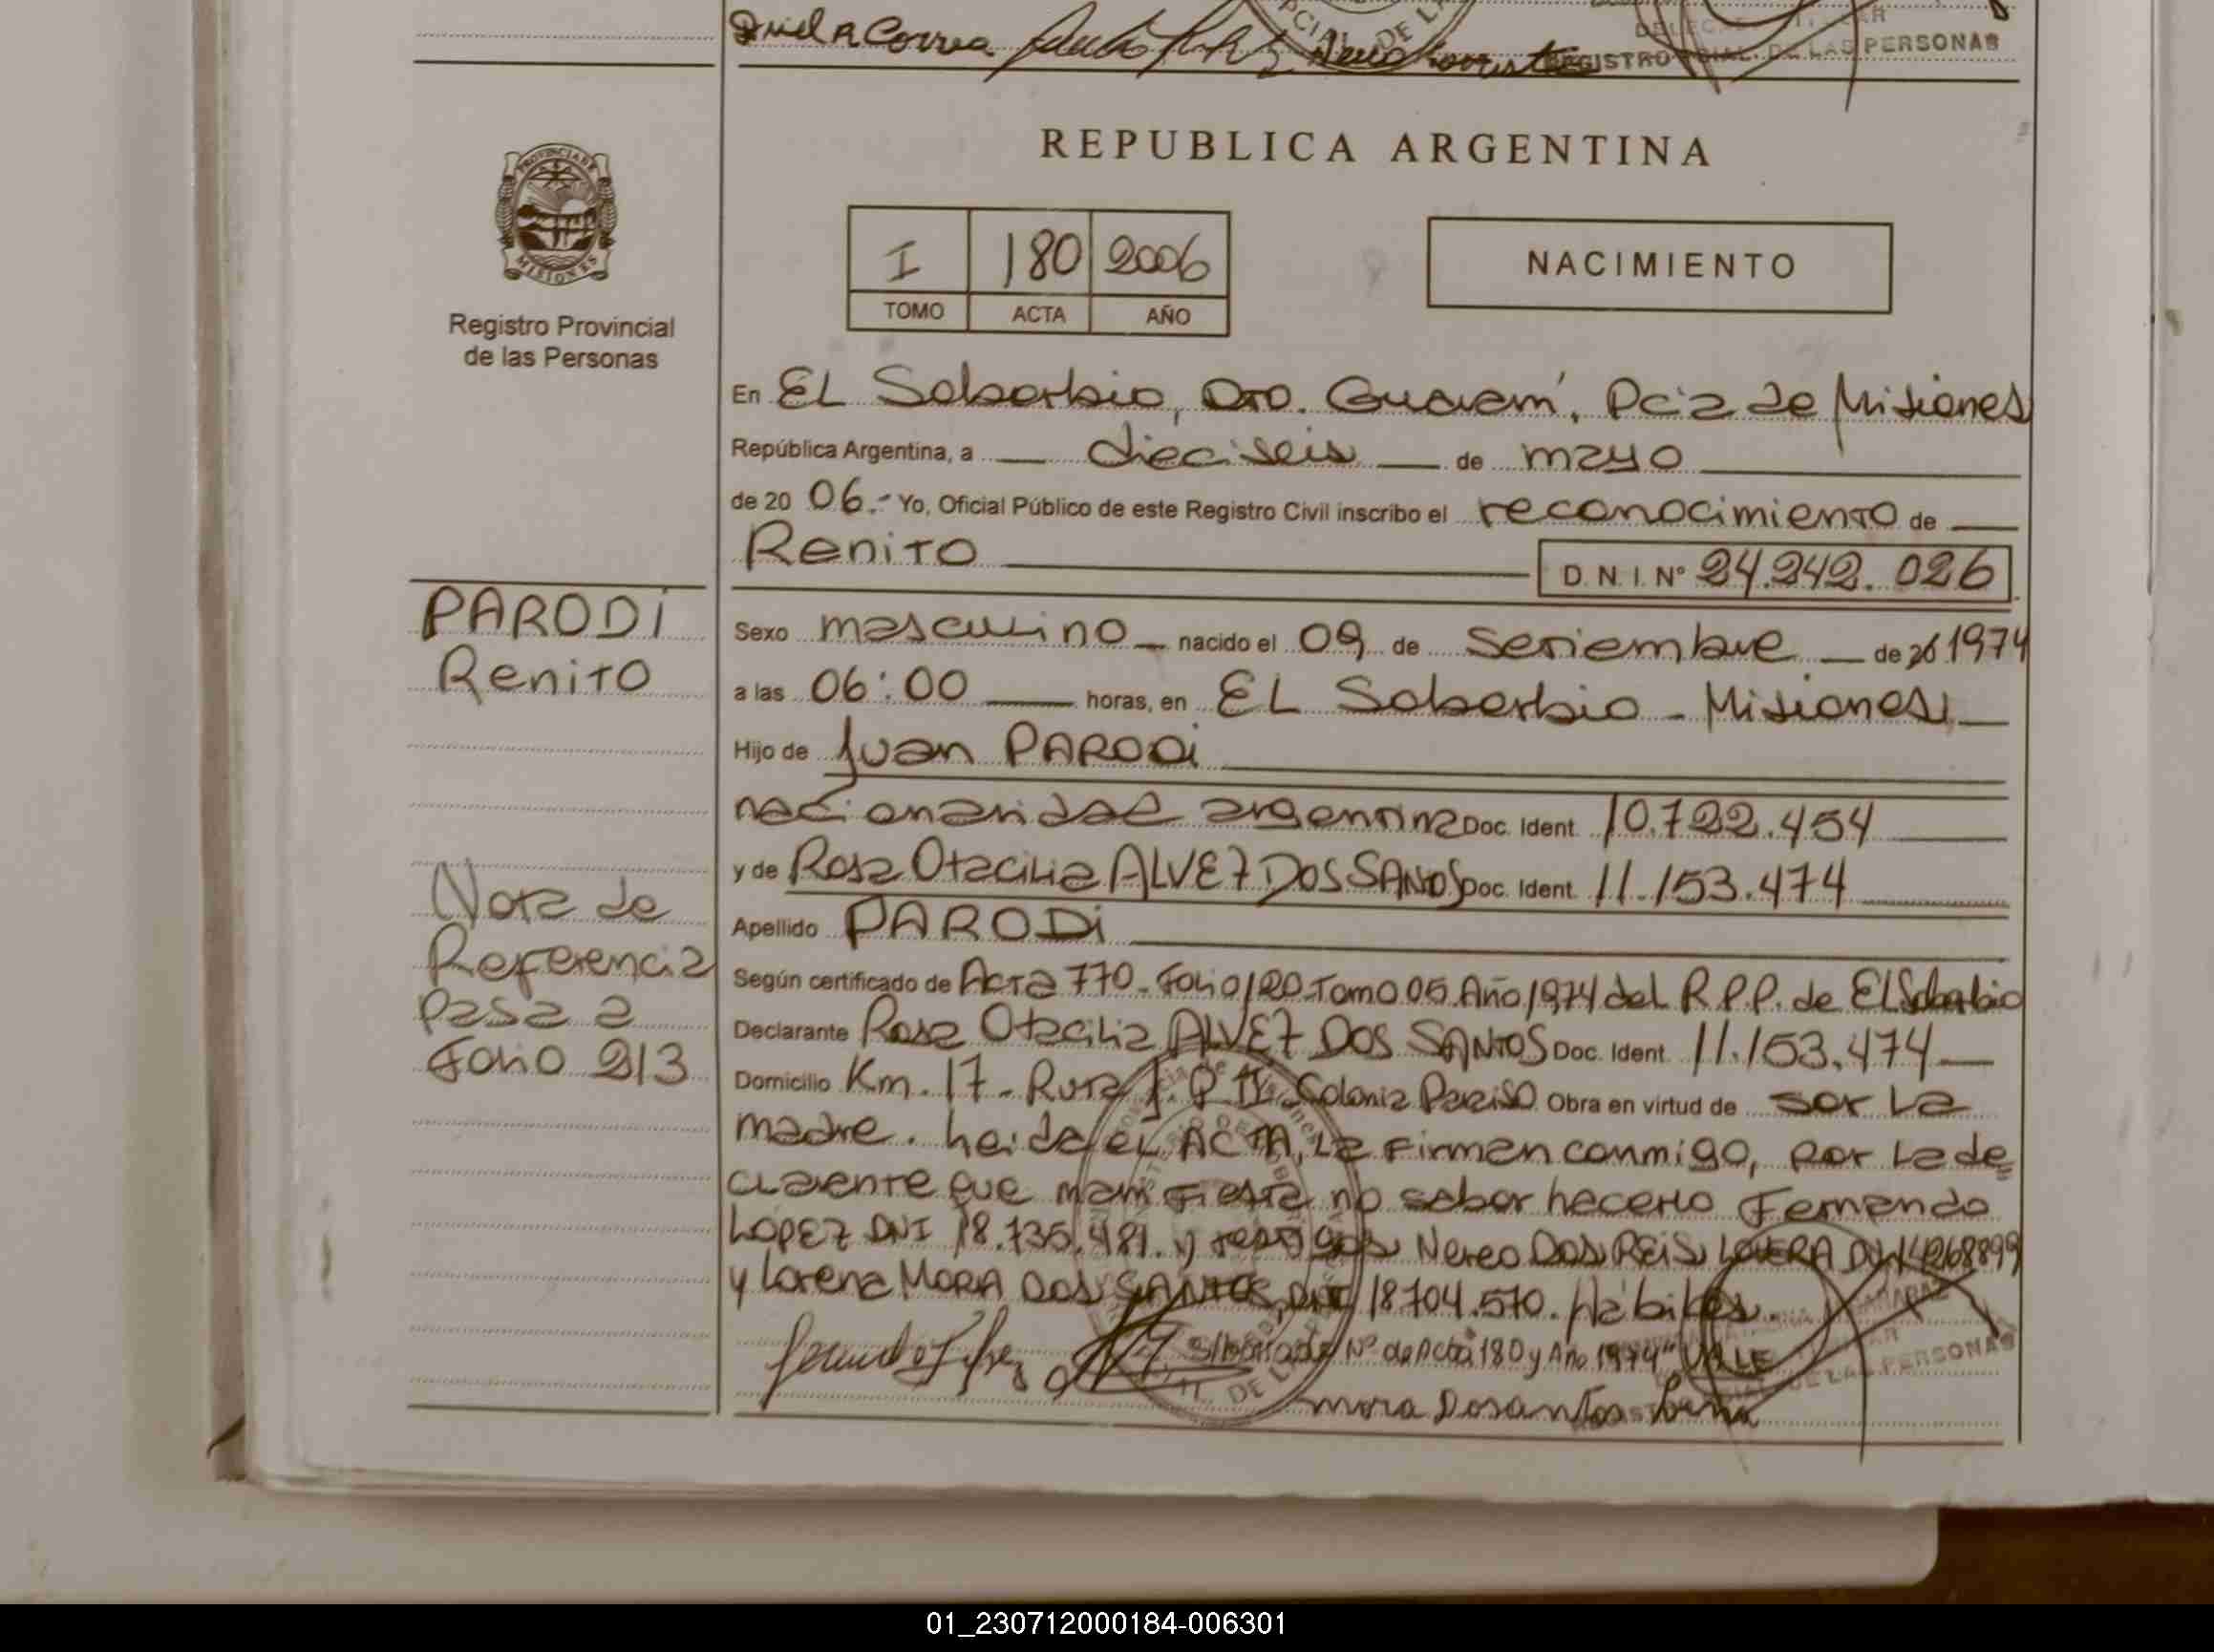 REGISTRO PCIAL. DE LAS PERSONAS
REPUBLICA ARGENTINA
PROVINCIA DE
MISIONES
Registro Provincial
de las Personas
I 180 2006
TOMO ACTA AÑO
NACIMIENTO
En EL Soberbio, Dto. Guaraní, Pcia de Misiones
República Argentina, a dieciseis de mayo
de 20 06.- Yo, Oficial Público de este Registro Civil inscribo el reconocimiento de
Renito D. N. I. Nº 24.242.026
PARODI
Renito
Sexo masculino nacido el 09 de Setiembre de 20 1974
a las 06:00 horas, en EL Soberbio - Misiones
Hijo de Juan PARODi
nacionalidad argentina Doc. Ident. 10.722.454
y de Rosa Otacilia ALVEZ DOS SANTOS Doc. Ident. 11.153.474
Apellido PARODi
Nota de
Referencia
Pasa a
Folio 213
Según certificado de Acta 770 - Folio 120 - Tomo 05 Año 1974 del R.P.P. de El Soberbio
Declarante Rosa Otacilia ALVEZ DOS SANTOS Doc. Ident. 11.153.474
Domicilio Km. 17 - Ruta J. P II Colonia Paraiso Obra en virtud de ser La
madre. Leida el ACTA, La Firman conmigo, por La de=
clarente que manifiesta no saber hacerlo Fernando
LOPEZ DNI 18.735.481. y testigos Nereo DOS REIS LOVERA DNI
y Lorena MORA DOS SANTOS, DNI 18704.570. Hábiles.
S/borrado Nº de Acta 180 y Año 1974" VALE
Mora Dosantos Lorena
01_230712000184-006301